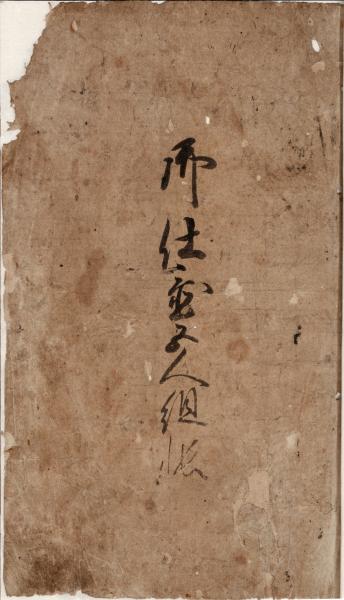 御仕置五人組帳